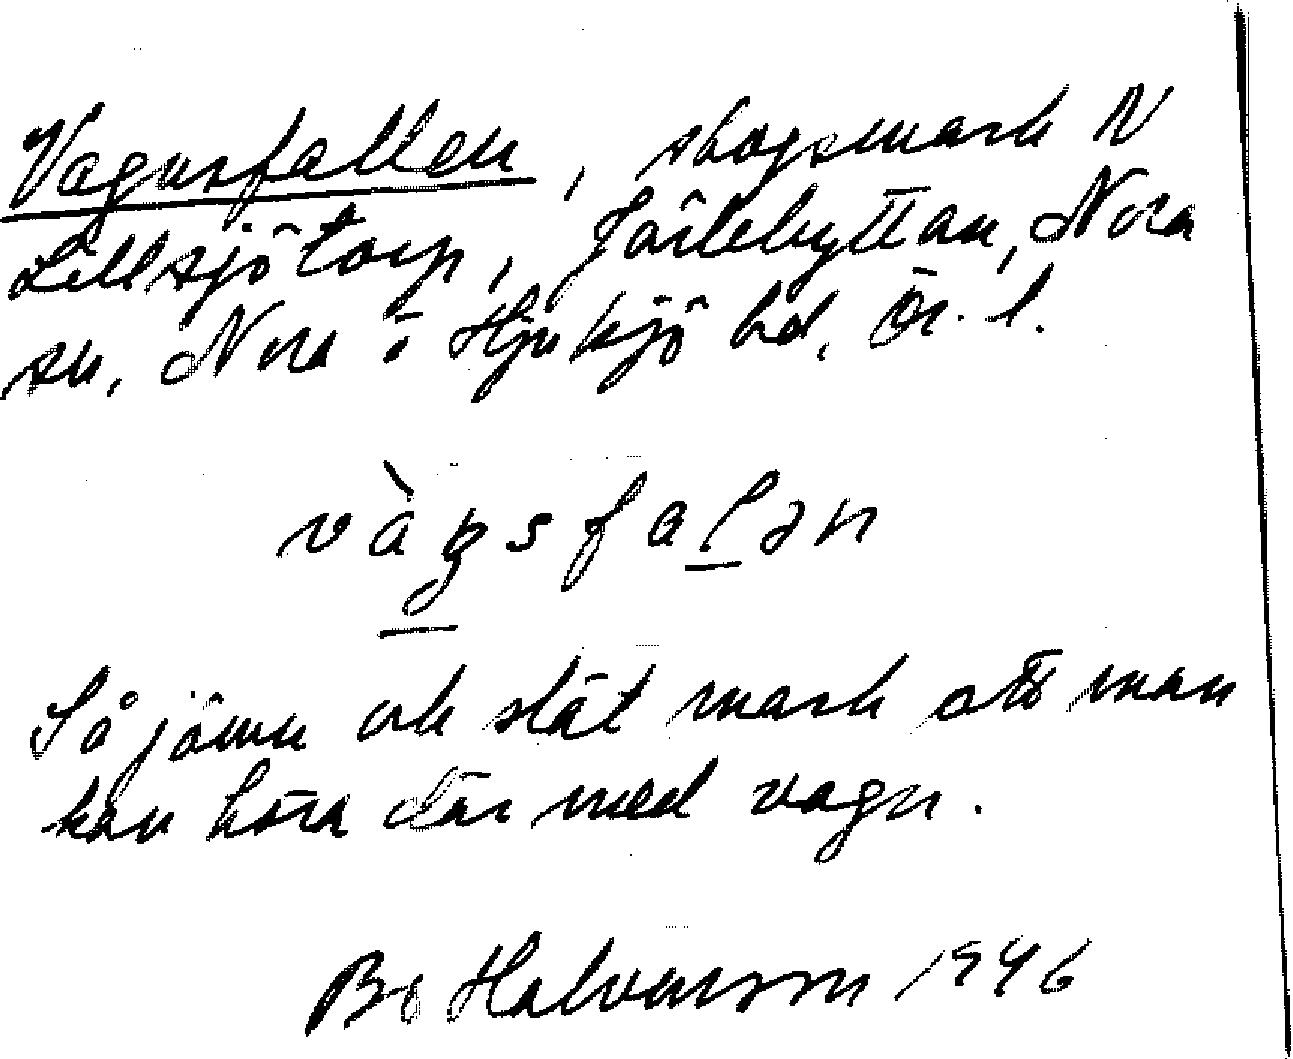 Vagnsfallen, skogsmark N
Lillsjötorp, Järlehyttan, Nora
sn, Nora o Hjulsjö hd, Ör. l.
vàgsfalən
Så jämn och slät mark att man
kan köra där med vagn.
Bo Halvarsson 1946